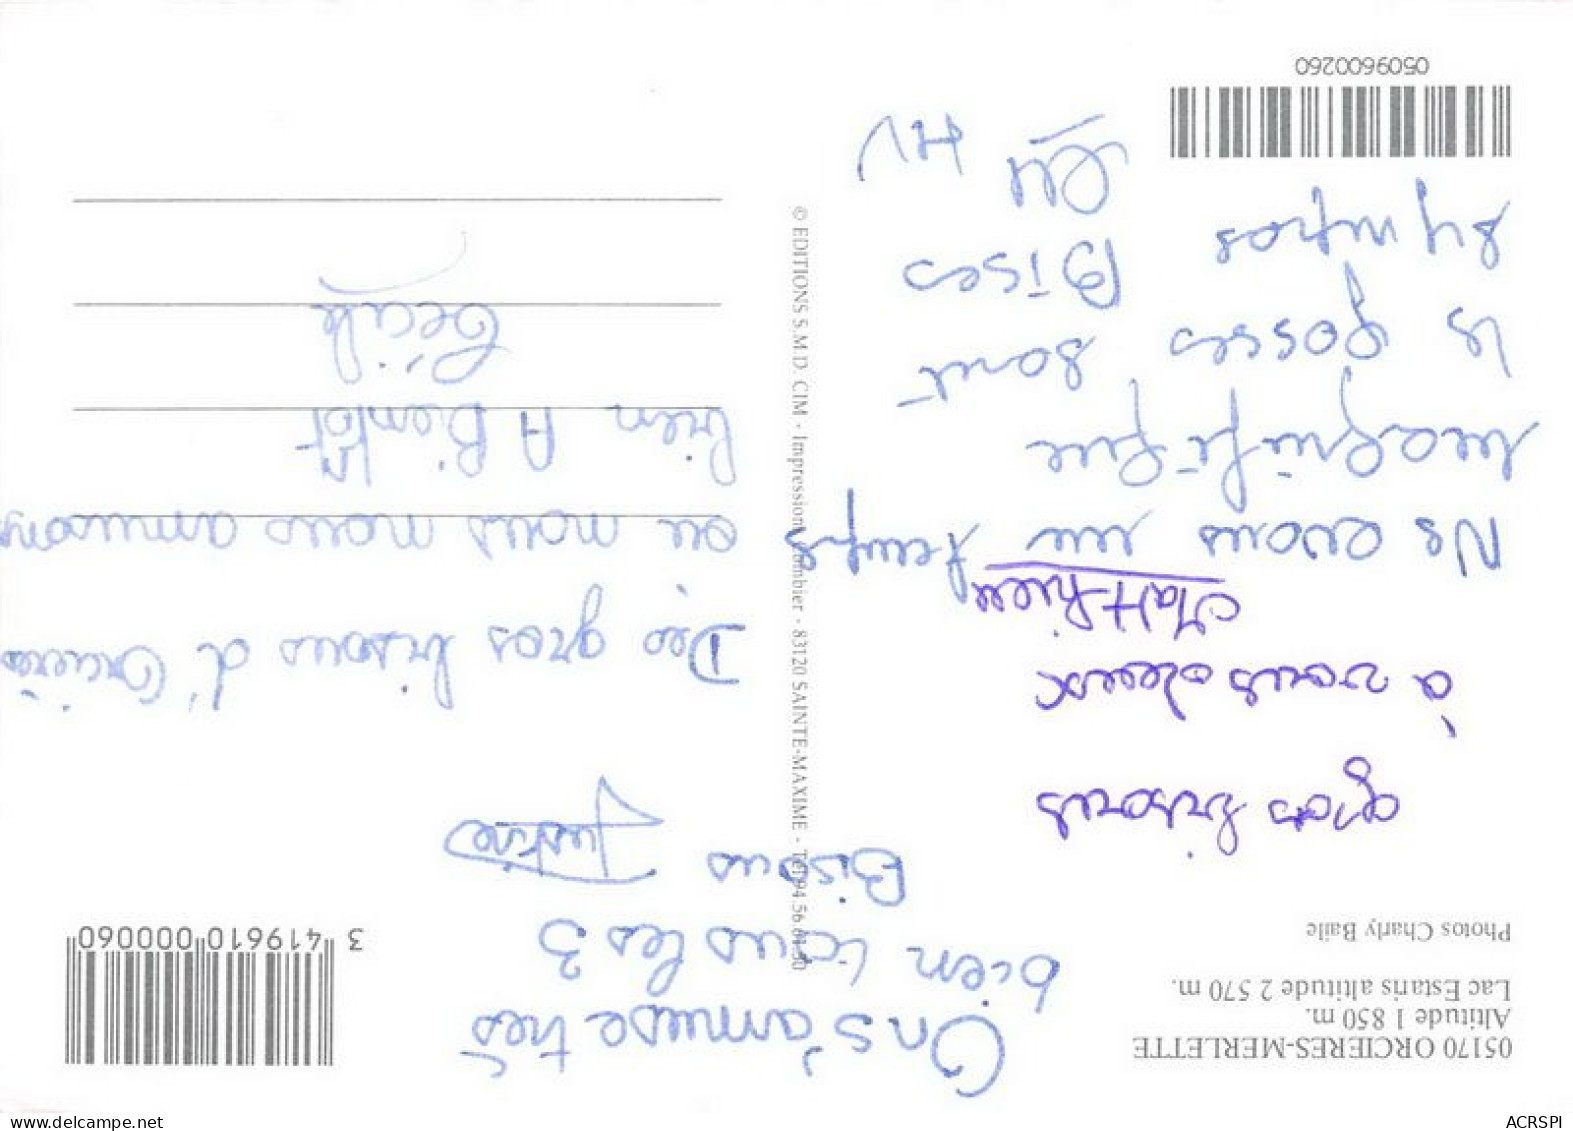 05170 ORCIERES-MERLETTE
Altitude 1 850 m.
Lac Estaris altitude 2 570 m.
Photos Charly Baile
On s'amuse très
bien tous les 3
Bisous Justine
gros bisous
à vous deux
Matthieu
Des gros bisous d'Orcières
ou nous nous amusons
bien A Bientôt
Cécile
Ns avons un temps
magnifique
les gosses sont
sympas Bises
3 419610 000060
© EDITIONS S.M.D. CIM - Impression Combier - 83120 SAINTE-MAXIME - Tél 94.56.61.30
0509600260
www.delcampe.net
ACRSPI